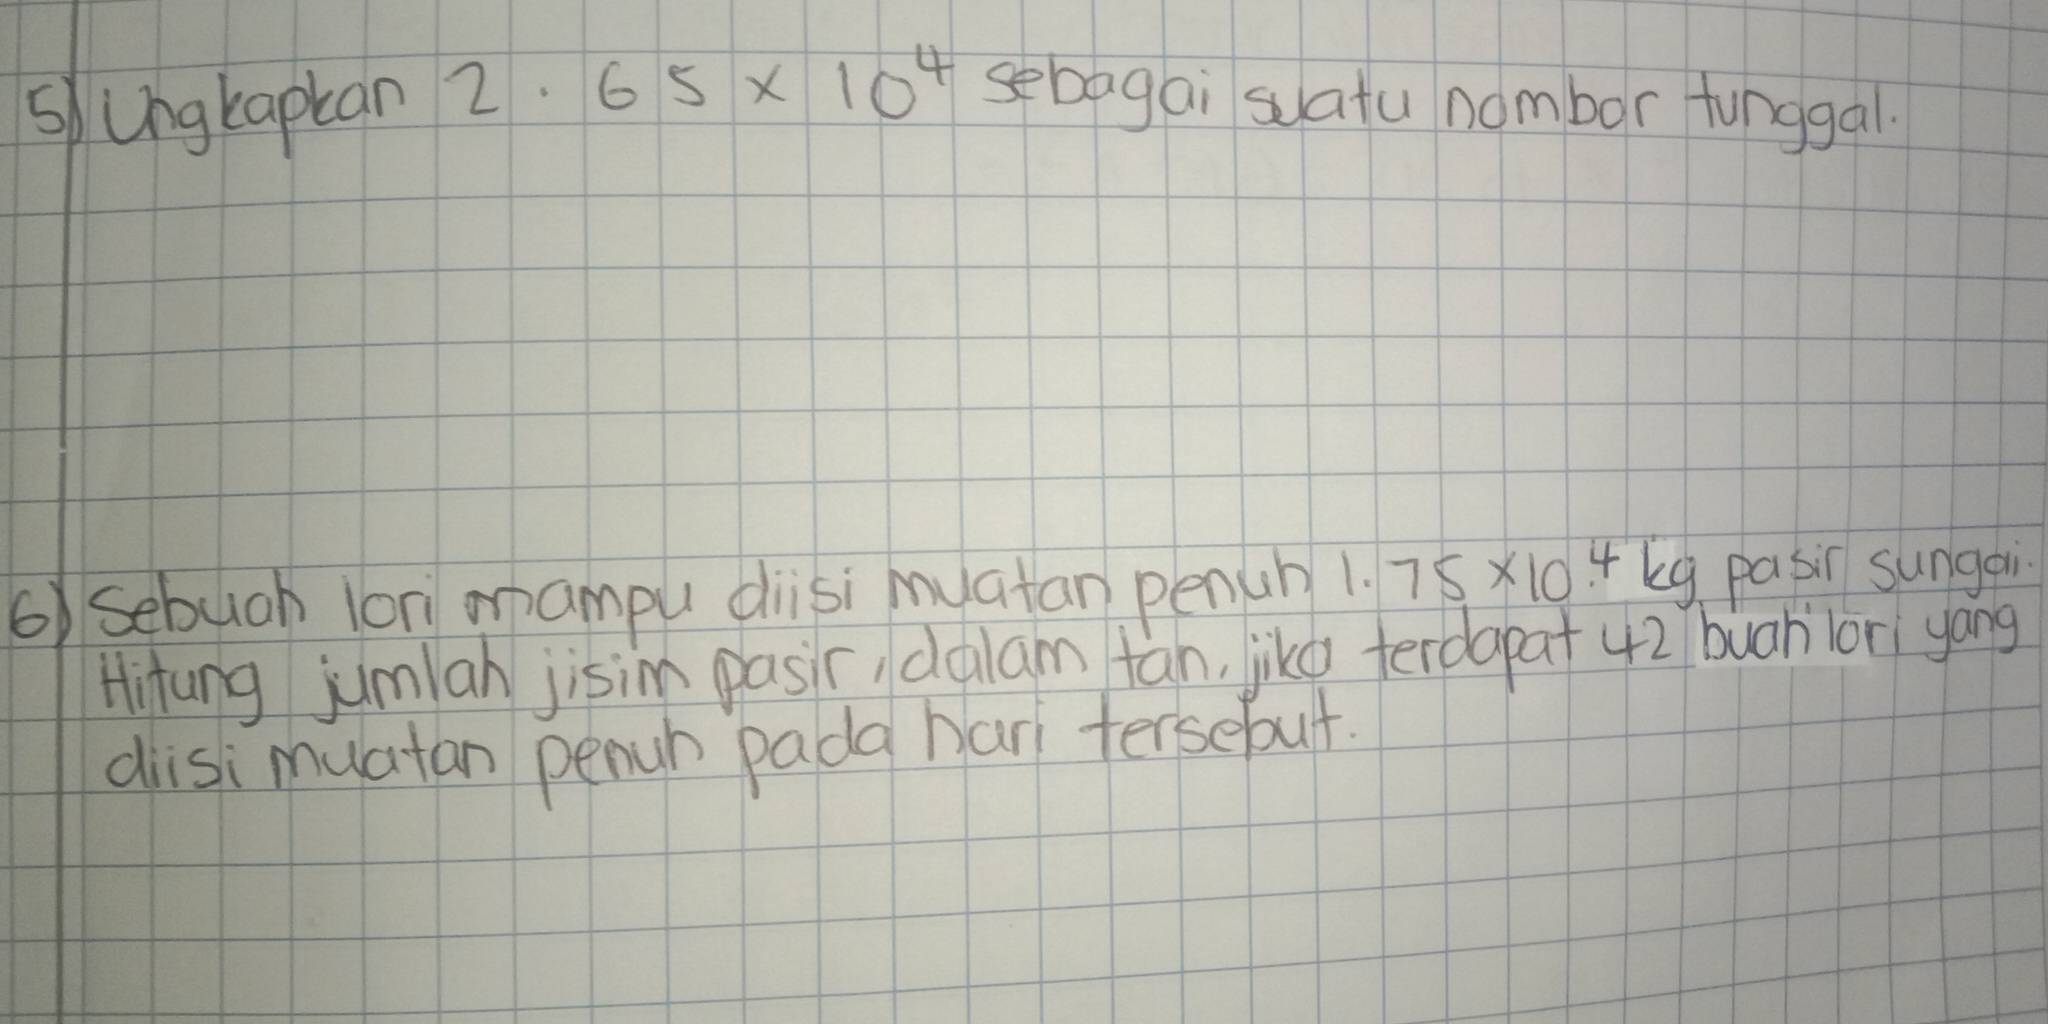 5) Ungkapkan 2.65 × 10⁴ sebagai suatu nombor tunggal.
6) Sebuah lori mampu diisi muatan penuh 1.75 × 10⁴ kg pasir sungai.
Hitung jumlah jisim pasir, dalam tan, jika terdapat 42 buah lori yang
diisi muatan penuh pada hari tersebut.